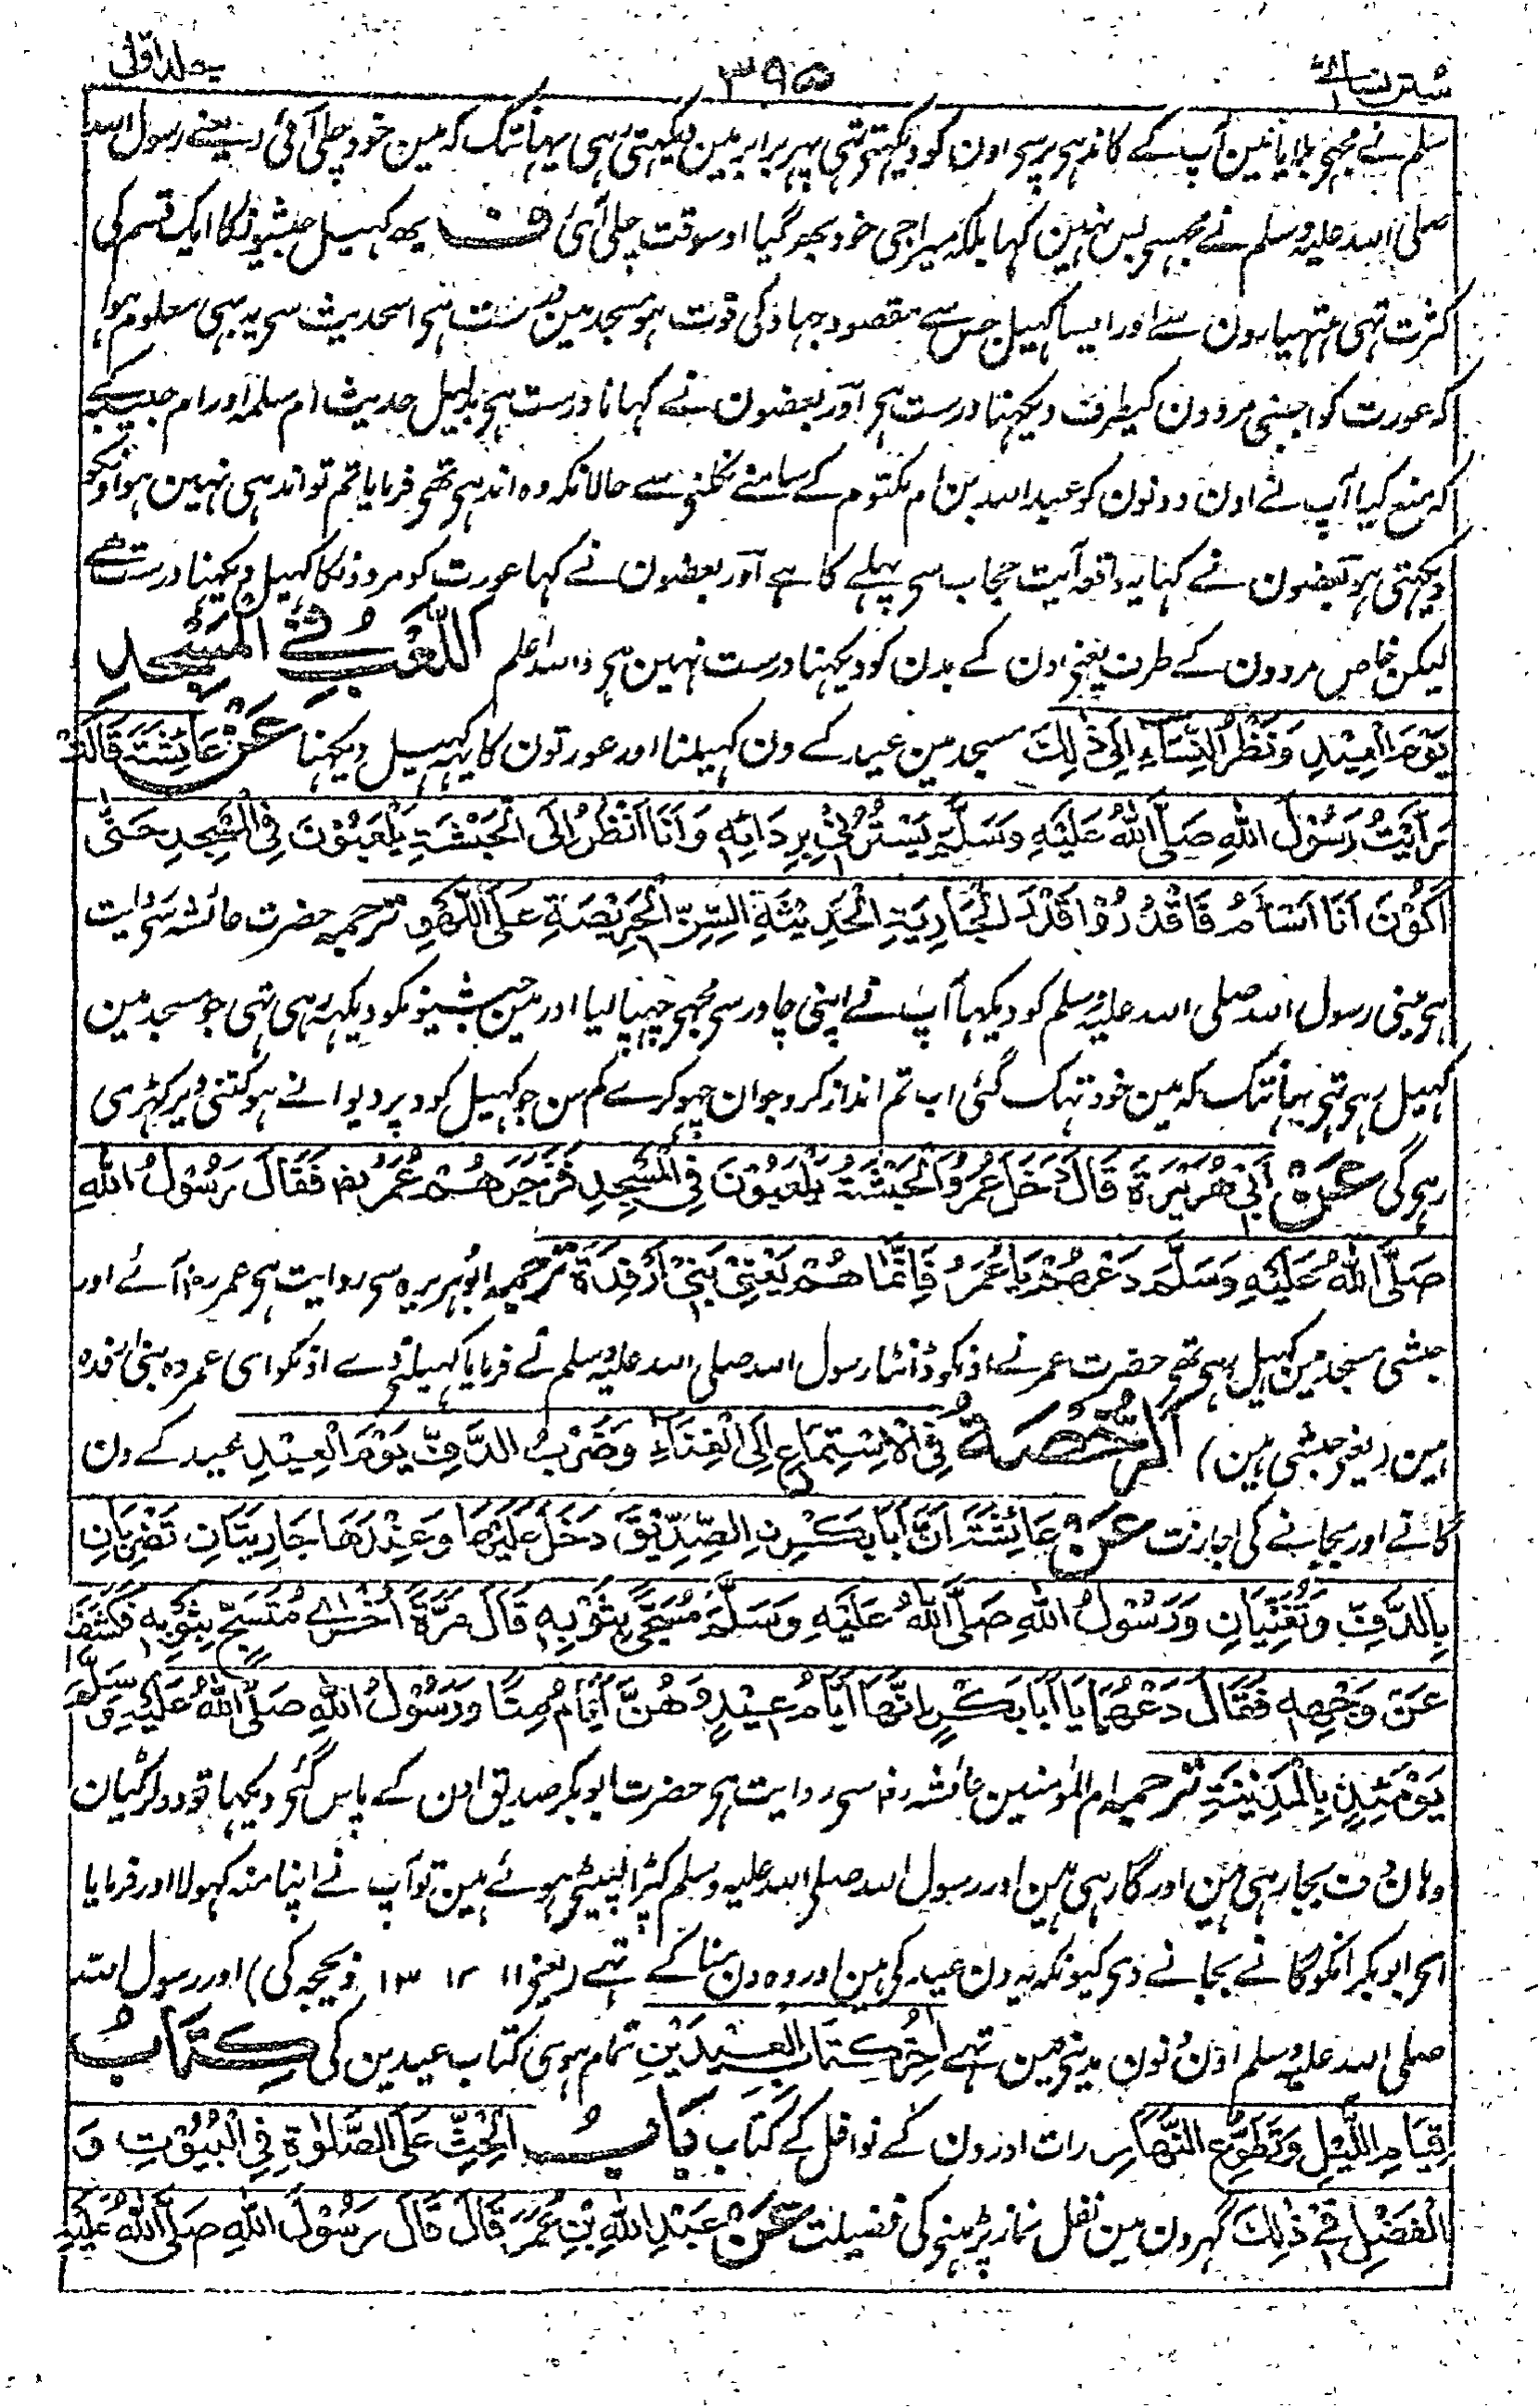 سنن نسائی ۳۹۵ جلد اول
سلم نے مجہے بلایا مین آپ کے کاندہے پر سے اون کو دیکہتی تہی پہر برابر مین دیکہتی رہی یہانتک کہ مین خود چلی آئی (یعنے رسول اللہ
صلی اللہ علیہ وسلم نے مجہسے بس نہین کہا بلکہ میرا جی خود بہر گیا اوسوقت چلی آئی ف یہ کہیل حبشیونکا ایک قسم کی
کثرت تہی ہتہیارون سے اور ایسا کہیل جس سے مقصود جہاد کی قوت ہو مسجد مین درست ہے اسحدیث سے یہ بہی معلوم ہوا
کہ عورت کو اجنبی مردون کیطرف دیکہنا درست ہے اور بعضون نے کہا نا درست ہے بدلیل حدیث ام سلمہ اور ام حبیبہ کے
کہ منع کیا آپ نے اون دونون کو عبد اللہ بن ام مکتوم کے سامنے نکلنے سے حالانکہ وہ اندہے تہے فرمایا تم تو اندہی نہین ہو اونکو
دیکہتی ہو بعضون نے کہا یہ واقعہ آیت حجاب سے پہلے کا ہے اور بعضون نے کہا عورت کو مردونکا کہیل دیکہنا درست ہے
لیکن خاص مردون کے طرف یعنے اون کے بدن کو دیکہنا درست نہین ہے واللہ اعلم اَللَّعِبُ فِي الْمَسْجِدِ
يَوْمَ الْعِيْدِ وَنَظَرُ النِّسَاءِ اِلَى ذٰلِكَ مسجد مین عید کے دن کہیلنا اور عورتون کا یہہ کہیل دیکہنا عَنْ عَائِشَةَ قَالَتْ
رَاَيْتُ رَسُوْلَ اللهِ صَلَّى اللهُ عَلَيْهِ وَسَلَّمَ يَسْتُرُنِيْ بِرِدَائِهٖ وَاَنَا اَنْظُرُ اِلَى الْحَبَشَةِ يَلْعَبُوْنَ فِي الْمَسْجِدِ حَتّٰى
اَكُوْنَ اَنَا اَسْاَمُ فَاقْدُرُوْا قَدْرَ الْجَارِيَةِ الْحَدِيْثَةِ السِّنِّ الْحَرِيْصَةِ عَلَى اللَّهْوِ ترجمہ حضرت عائشہ سے روایت
ہے مینے رسول اللہ صلی اللہ علیہ وسلم کو دیکہا آپ نے اپنی چادر سے مجہے چہپا لیا اور مین حبشیونکو دیکہہ رہی تہی جو مسجد مین
کہیل رہے تہے یہانتک کہ مین خود تہک گئی اب تم انداز کرو جوان چہوکرے کم سن جو کہیل کود پر دیوانے ہو کتنی دیر کہڑی
رہے گی عَنْ اَبِيْ هُرَيْرَةَ قَالَ دَخَلَ عُمَرُ وَالْحَبَشَةُ يَلْعَبُوْنَ فِي الْمَسْجِدِ فَزَجَرَهُمْ عُمَرُ رض فَقَالَ رَسُوْلُ اللهِ
صَلَّى اللهُ عَلَيْهِ وَسَلَّمَ دَعْهُمْ يَا عُمَرُ فَاِنَّمَا هُمْ يَعْنِيْ بَنِيْ اَرْفِدَةَ ترجمہ ابوہریرہ سے روایت ہے عمر رض آئے اور
حبشی مسجد مین کہیل رہے تہے حضرت عمر نے اونکو ڈانٹا رسول اللہ صلی اللہ علیہ وسلم نے فرمایا کہیلنے دے اونکو اے عمر وہ بنی ارفدہ
ہین (یعنے حبشی ہین) اَلرُّخْصَةُ فِي الْاِسْتِمَاعِ اِلَى الْغِنَاءِ وَضَرْبِ الدَّفِّ يَوْمَ الْعِيْدِ عید کے دن
گانے اور بجانے کی اجازت عَنْ عَائِشَةَ اَنَّ اَبَا بَكْرِ نِ الصِّدِّيْقَ دَخَلَ عَلَيْهَا وَعِنْدَهَا جَارِيَتَانِ تَضْرِبَانِ
بِالدَّفِّ وَتُغَنِّيَانِ وَرَسُوْلُ اللهِ صَلَّى اللهُ عَلَيْهِ وَسَلَّمَ مُسَجًّى بِثَوْبِهٖ قَالَ مَرَّةً اُخْرٰى مُتَسَجٍّ بِثَوْبِهٖ فَكَشَفَ
عَنْ وَجْهِهٖ فَقَالَ دَعْهُمَا يَا اَبَا بَكْرٍ اِنَّهَا اَيَّامُ عِيْدٍ وَهُنَّ اَيَّامُ مِنًا وَرَسُوْلُ اللهِ صَلَّى اللهُ عَلَيْهِ وَسَلَّمَ
يَوْمَئِذٍ بِالْمَدِيْنَةِ ترجمہ ام المؤمنین عائشہ رض سے روایت ہے حضرت ابو بکر صدیق اون کے پاس گئے دیکہا تو دو لڑکیان
وہان دف بجا رہی ہین اور گا رہی ہین اور رسول اللہ صلی اللہ علیہ وسلم کپڑا لپیٹے ہوئے ہین تو آپ نے اپنا منہ کہولا اور فرمایا
اے ابو بکر انکو گانے بجانے دے کیونکہ یہ دن عید کی ہین اور وہ دن منا کے تہے (یعنے ۱۱ ۱۲ ۱۳ ذیحجہ کی) اور رسول اللہ
صلی اللہ علیہ وسلم اون دنون مدینے مین تہے اٰخِرُ كِتَابِ الْعِيْدَيْنِ تمام ہوی کتاب عیدین کی كِتَابُ
قِيَامِ اللَّيْلِ وَتَطَوُّعِ النَّهَارِ رات اور دن کے نوافل کے کتاب بَابُ الْحَثِّ عَلَى الصَّلٰوةِ فِي الْبُيُوْتِ وَ
الْفَضْلِ فِيْ ذٰلِكَ گہرون مین نفل نماز پڑہنے کی فضیلت عَنْ عَبْدِ اللهِ بْنِ عُمَرَ قَالَ قَالَ رَسُوْلُ اللهِ صَلَّى اللهُ عَلَيْهِ